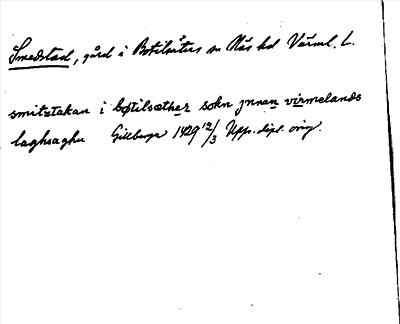 Smedstad, gård i Botilsäter sn Näs hd Värml. L.
smitztakan i bøtilsæther sokn jnnan virmelands
laghsaghu Gillberga 1429 12/3 Upps. dipl. orig.